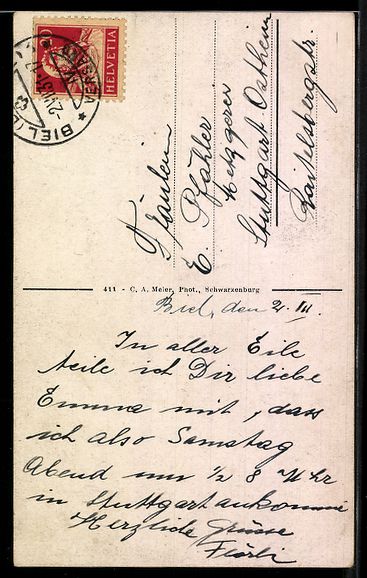 HELVETIA
BIEL
Fräulein
E. Pfähler
Metzgerei
Stuttgart-Ostheim
411 - C. A. Meier, Phot., Schwarzenburg
Biel, den 2. III.
In aller Eile
teile ich Dir liebe
Emma mit, dass
ich also Samstag
Abend um ½ 8 Uhr
in Stuttgart ankomme
Herzliche Grüsse